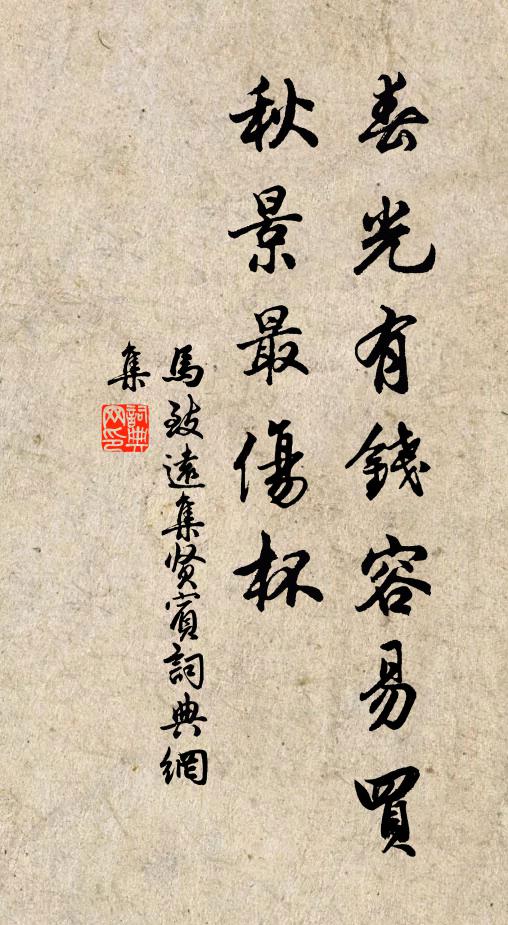 春光有錢容易買
秋景最傷杯
馬致遠集贤賓詞典網
集
詞典
网印